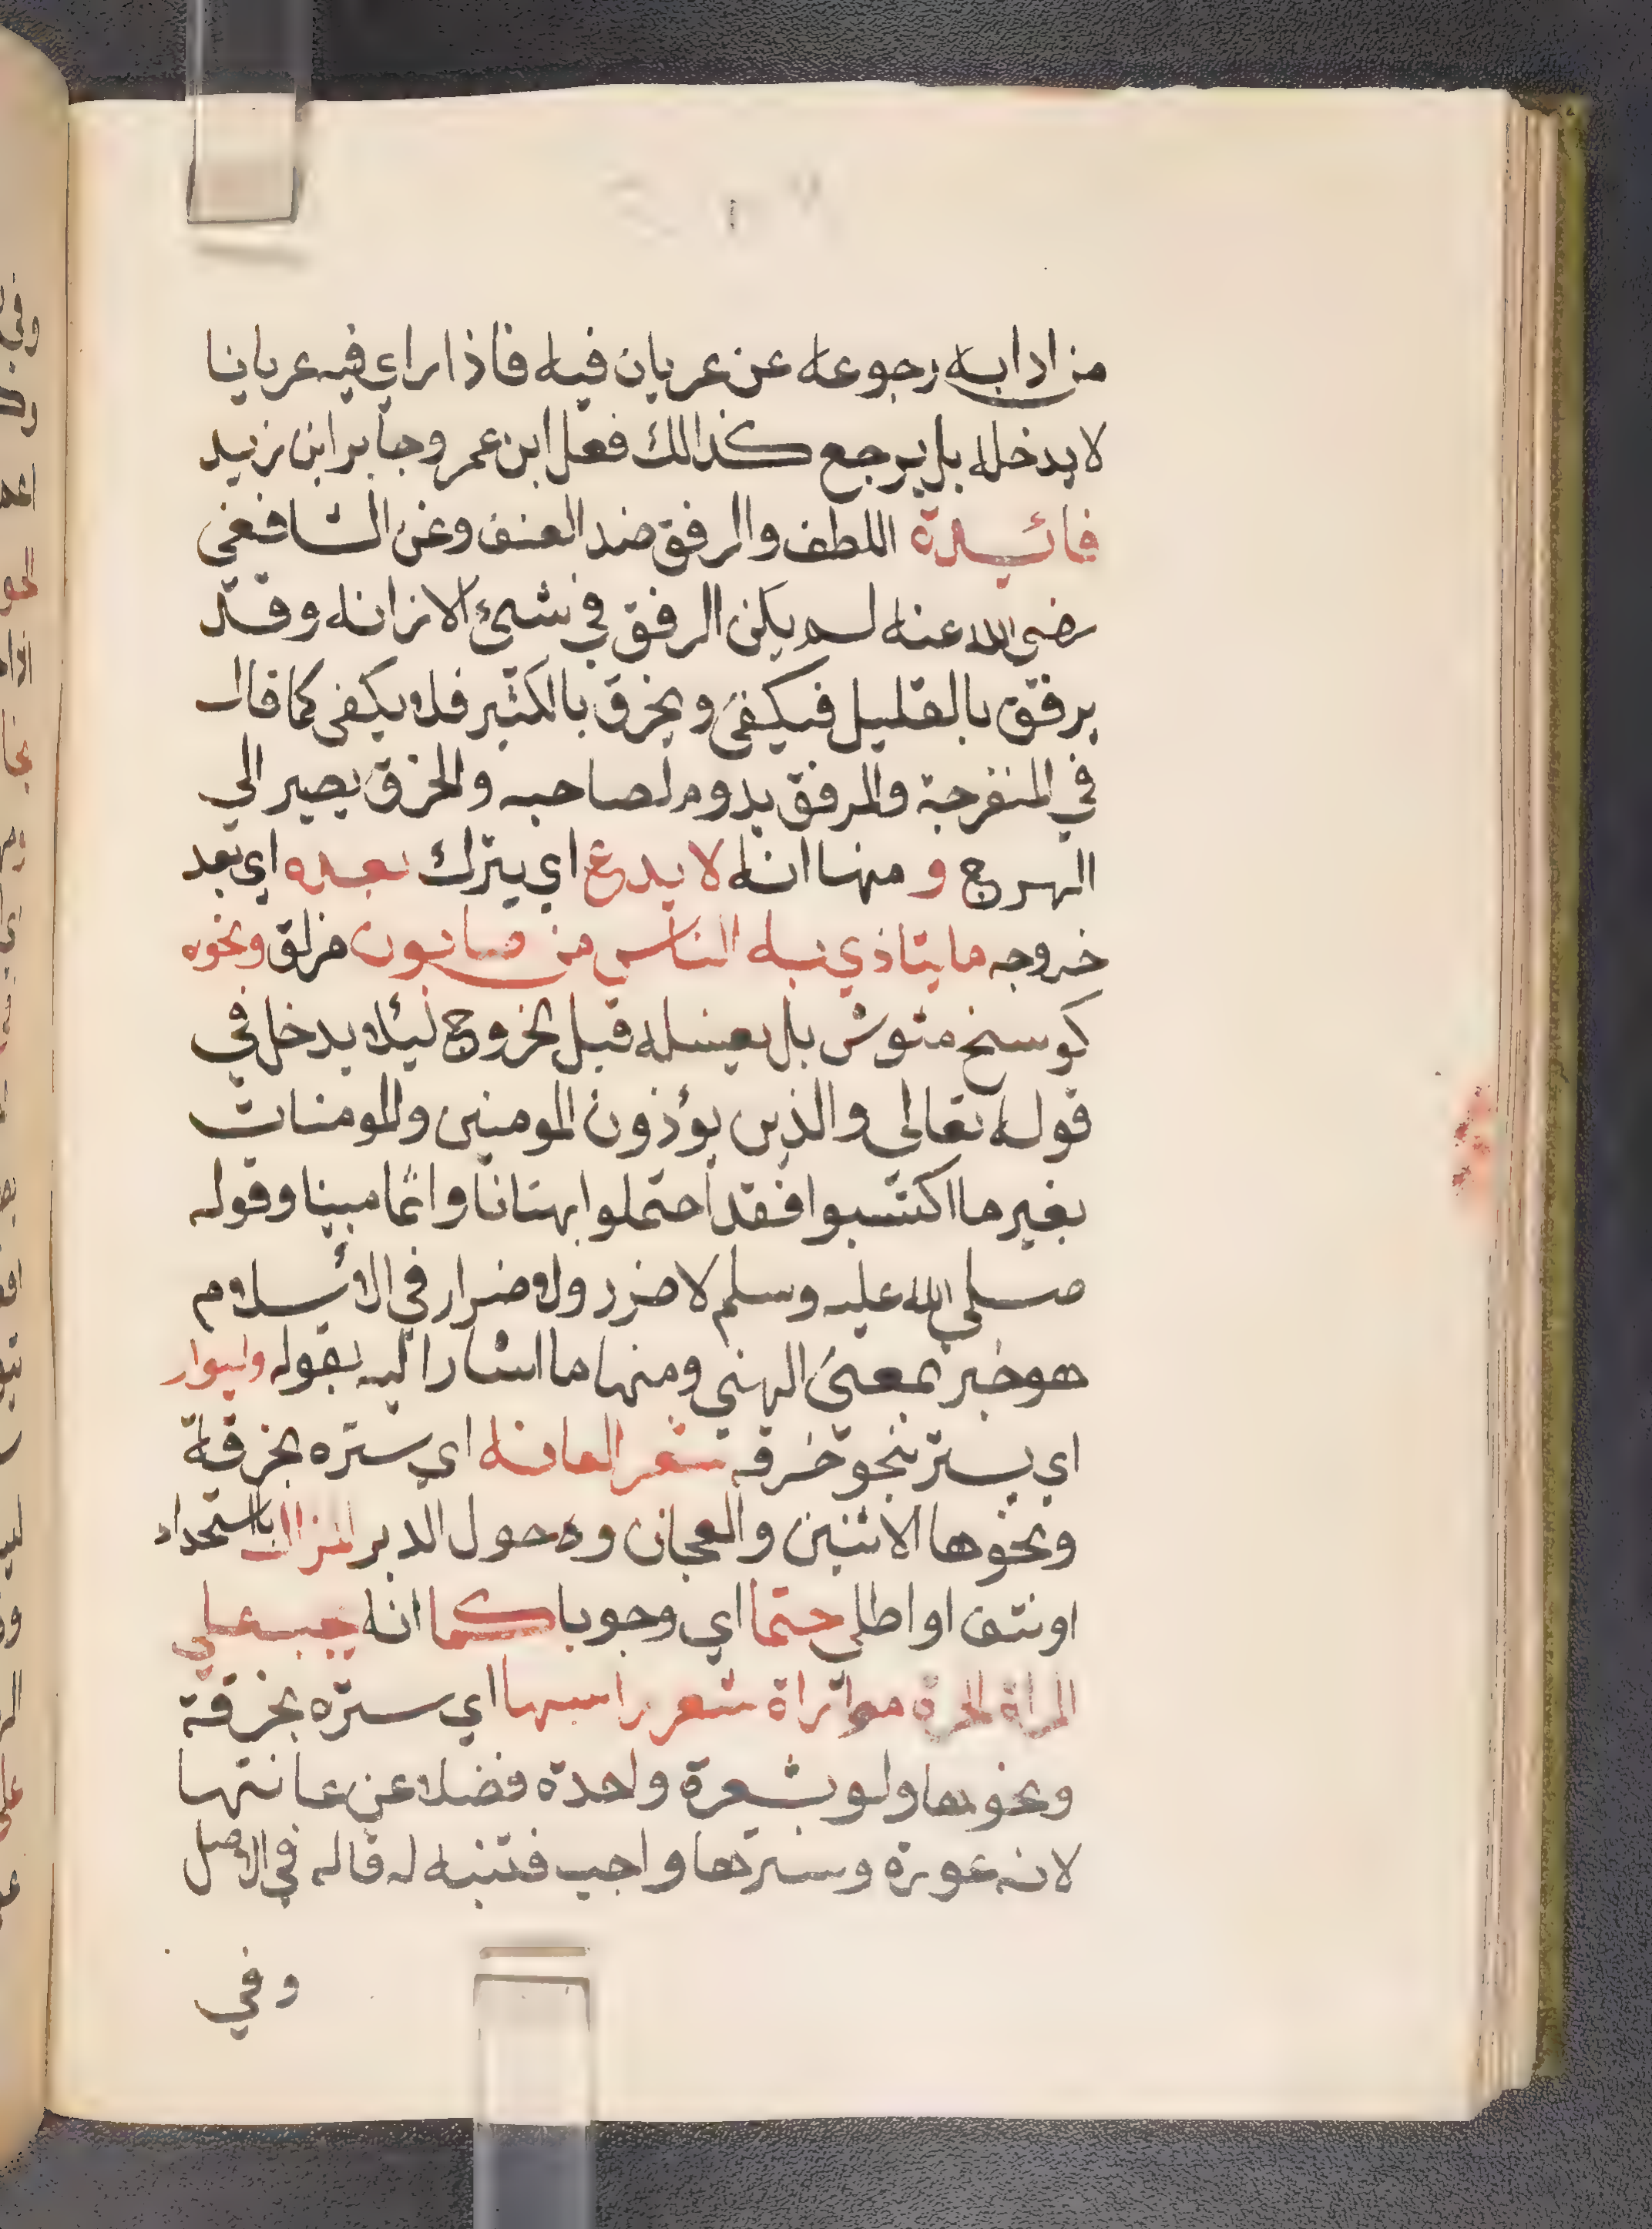 من ادابه رجوعه عن عريان فيه فاذا راي فيه عريانا
لا يدخله بل يرجع كذالك فعل ابن عمر وجابر ابن زيد
فائيدة اللطف والرفق ضد العنف وعن الشافعي
رضي الله عنه لم يكن الرفق في شيئ الا زانه وقد
يرفق بالقليل فيكفى ويخرق بالكثير فلا يكفى كما قال
في المنفرجة والرفق يدوم لصاحبه والخرق يصير الي
الهرج و منها انه لا يدع اي يترك بعده اي بعد
خروجه ما يتاذي به الناس من صابون مزلق ونحوه
كوسخ مشوش بل يغسله قبل الخروج ليئلا يدخل في
قوله تعالى والذين يؤذون المومنين والمومنات
بغير ما اكتسبوا فقد احتملوا بهتانا واثما مبينا وقوله
صلي الله عليه وسلم لا ضرر ولا ضرار في الائسلام
هو خبر بمعنى النهي ومنها ما اشار اليه بقوله وليوار
اي يستر بنحو خرقه شعر العانه اي ستره بخرقة
ونحوها الانثيين والعجان وه حول الدبر المزال باستحداد
او نتف او اطلي حتما اي وجوبا كما انه يجب علي
المراة الحرة مواراة شعر راسها اي ستره بخرقة
ونحوها ولو بشعرة واحدة فضلا عن عانتها
لانه عورة وسترها واجب فتنبه له قاله في الاصل
وفي